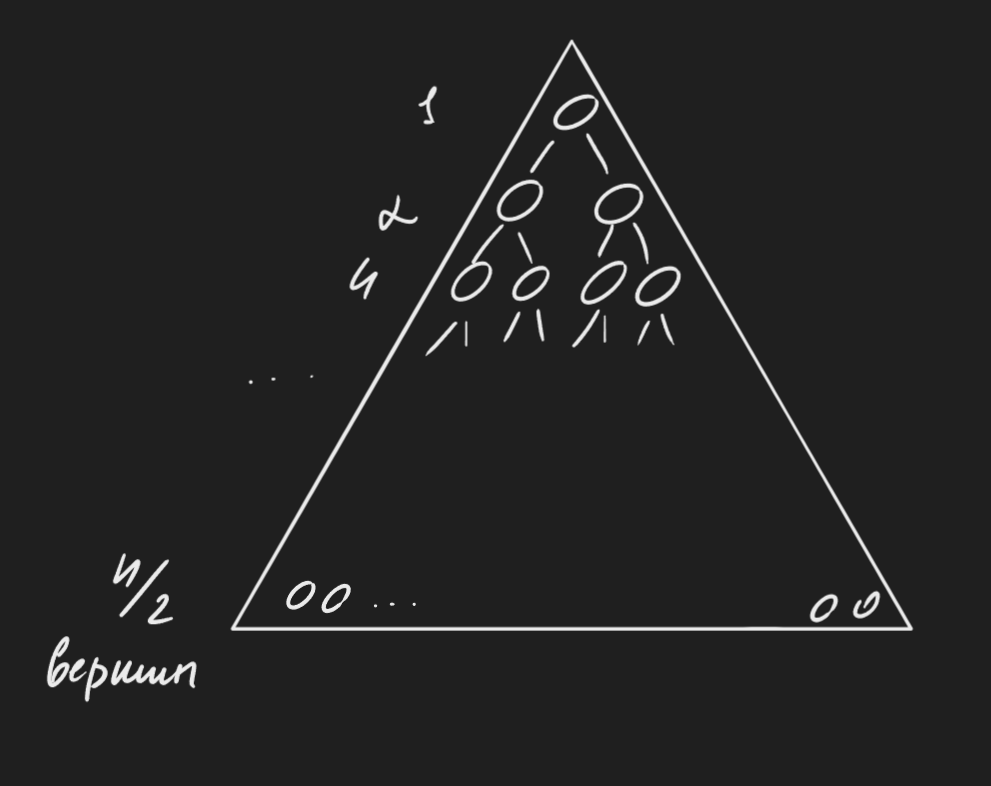 1
2
4
. . .
n/2
вершин
. . .